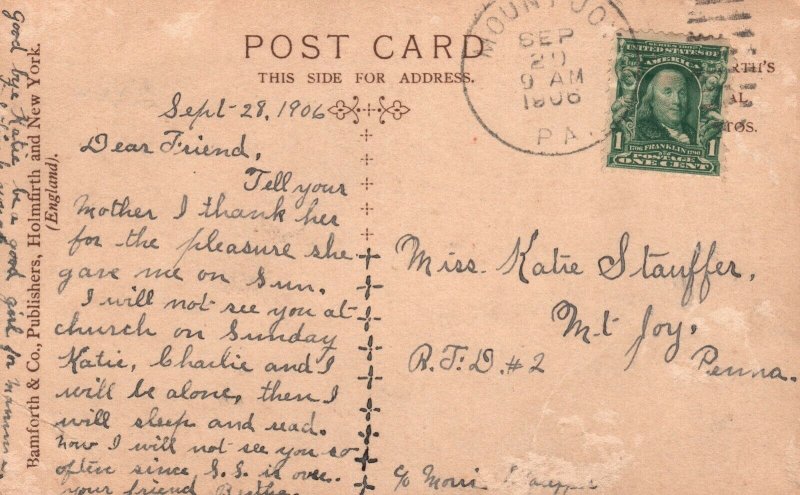 POST CARD
THIS SIDE FOR ADDRESS.
MOUNT JOY
SEP
9 AM
1906
PA.
SERIES 1902
UNITED STATES OF
AMERICA
FRANKLIN
1 POSTAGE 1
ONE CENT
Sept-28, 1906
Dear Friend,
Tell your
Mother I thank her
for the pleasure she
gave me on Sun.
I will not see you at
church on Sunday
Katie, Charlie and I
will be alone, then I
will sleep and read.
Now I will not see you so
often since S.S. is over.
your friend Bertha.
Good bye Katie be a good girl for
Miss. Katie Stauffer,
Mt Joy,
R.F.D. #2 Penna.
c/o
Bamforth & Co., Publishers, Holmfirth and New York.
(England).